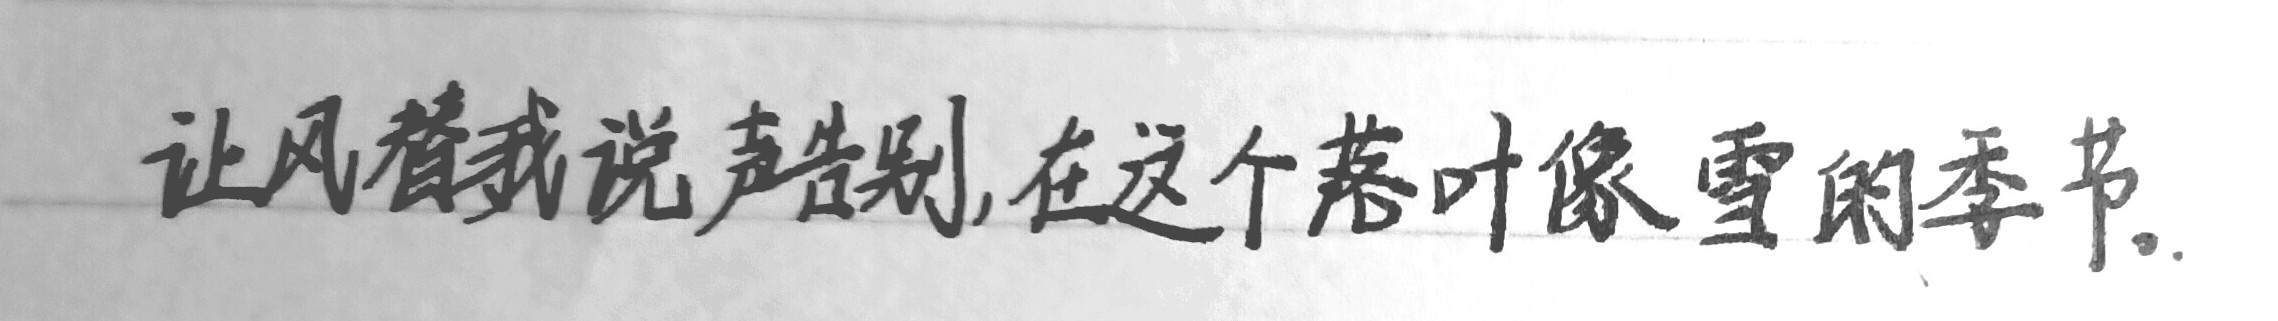 让风替我说声告别,在这个落叶像雪的季节。